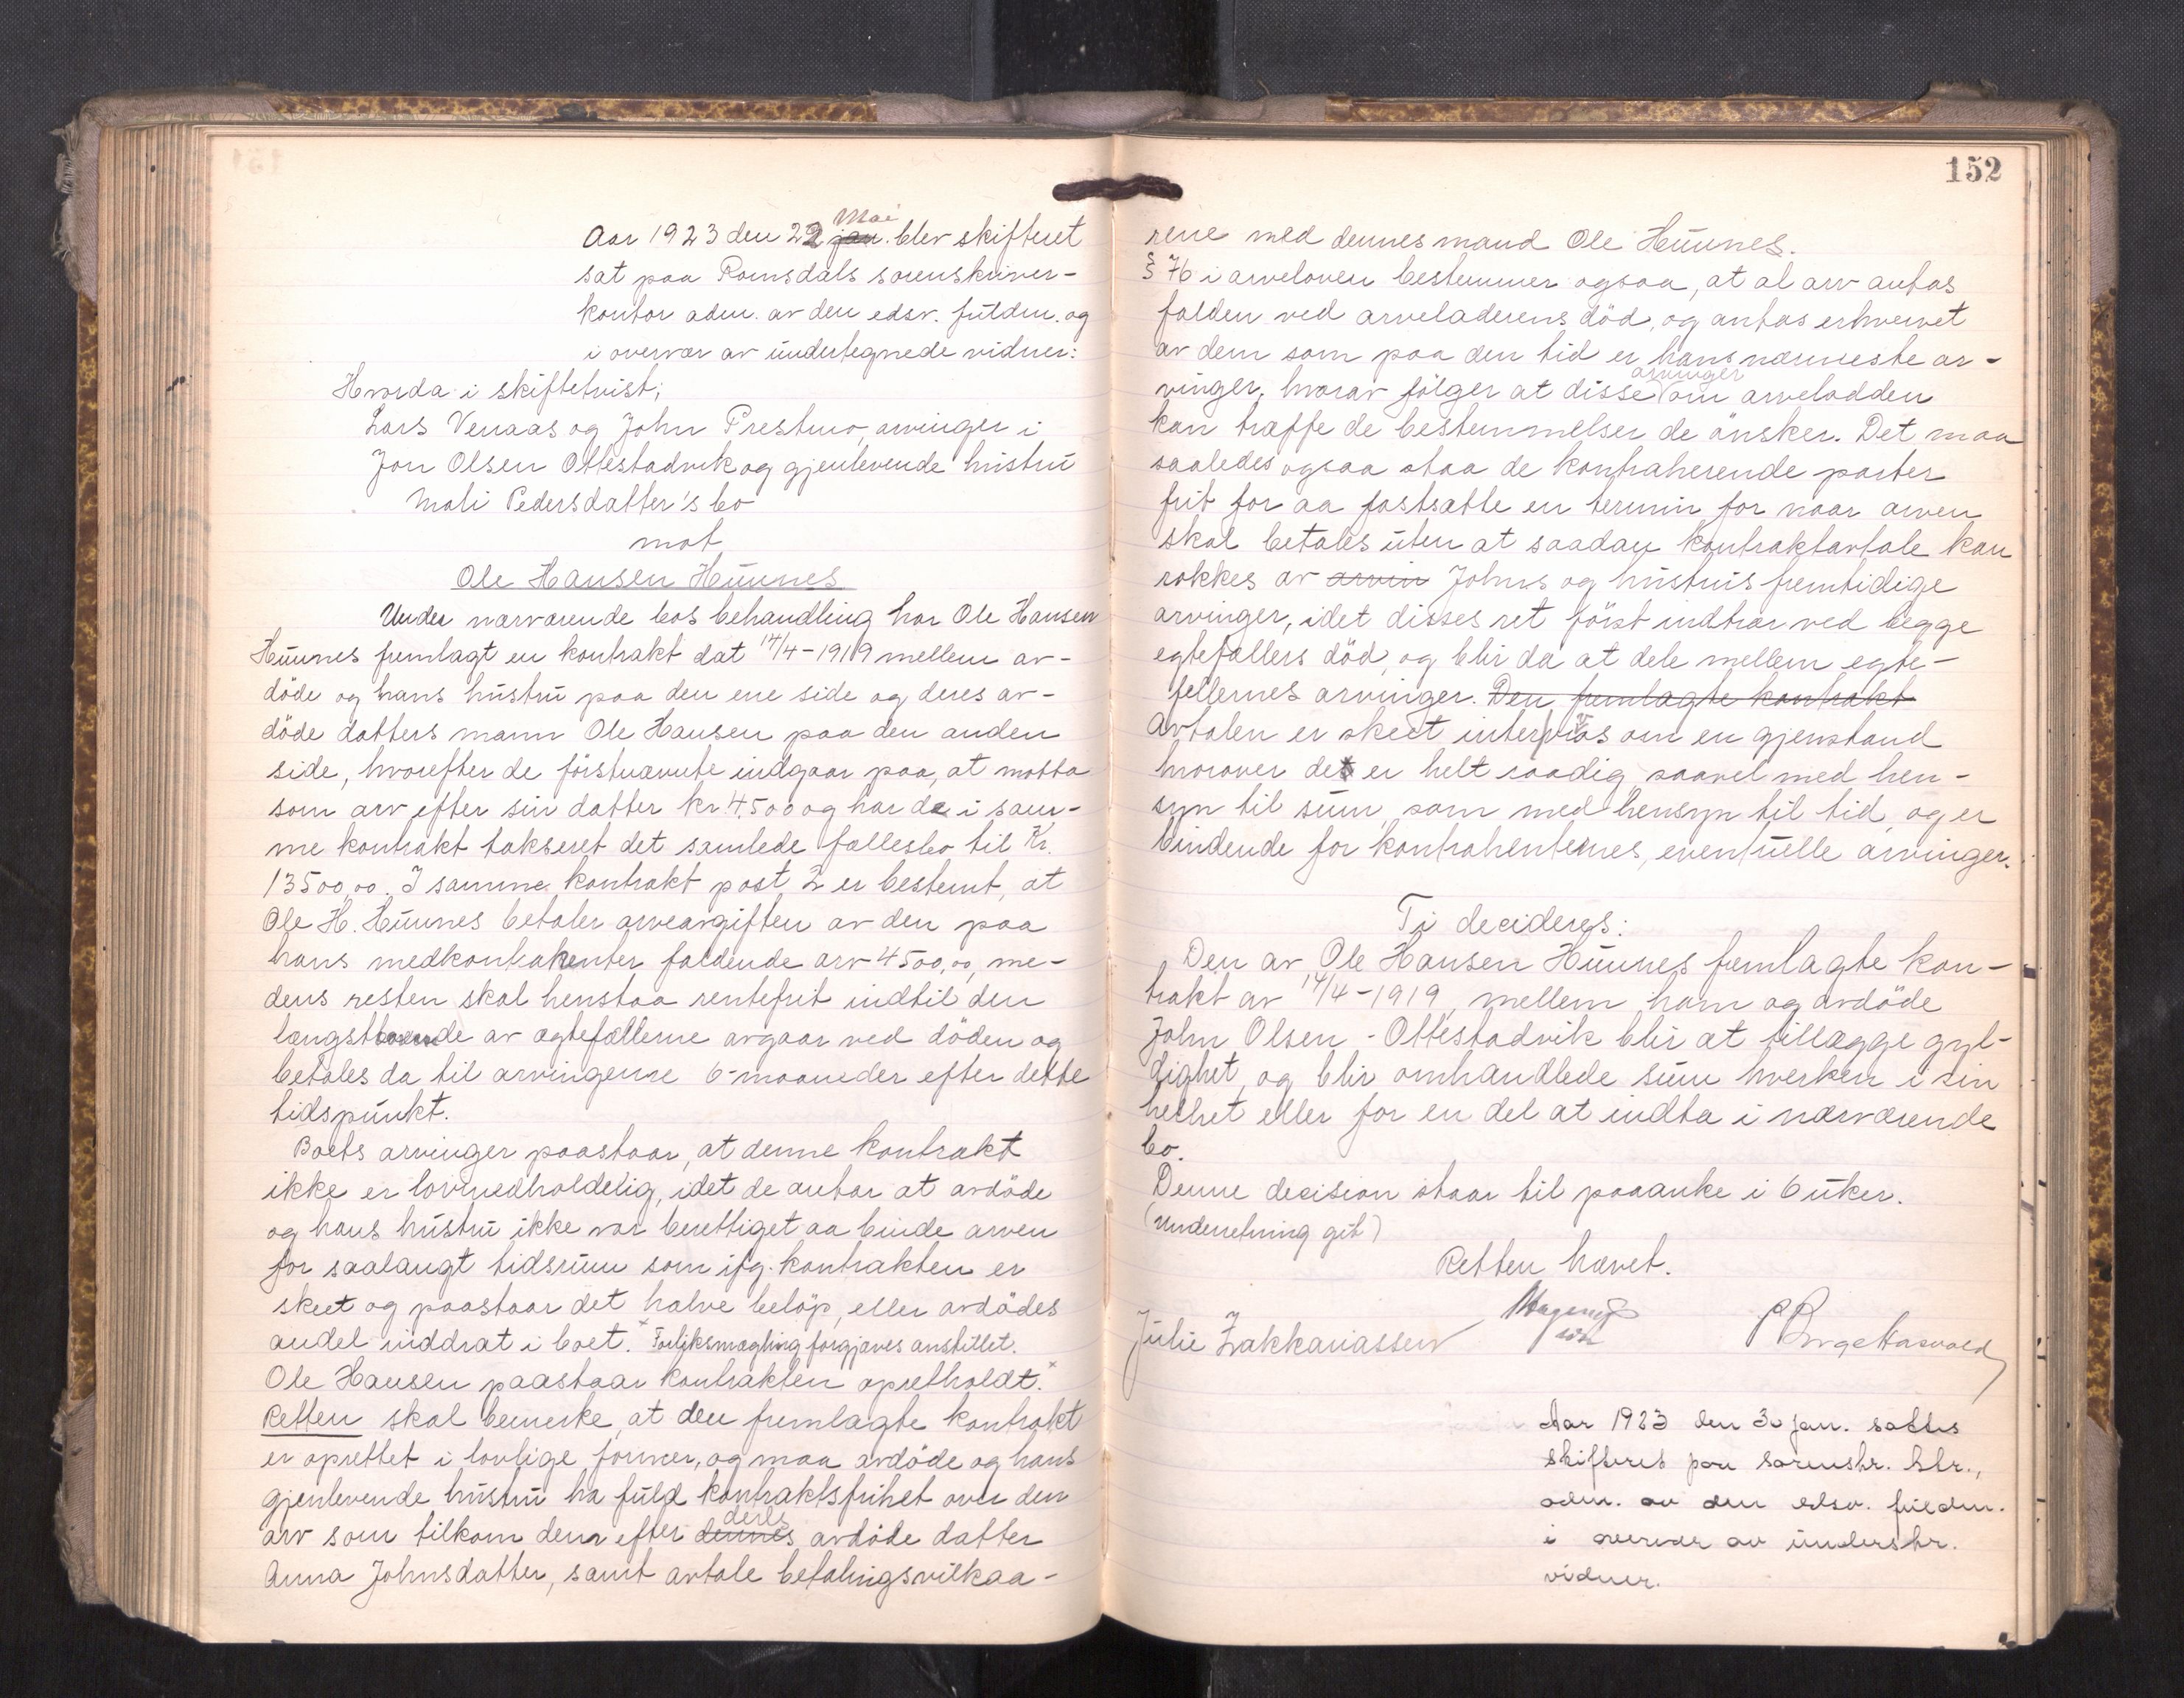 Aar 1923 den 22 jan. Mai blev skifteret
sat paa Romsdals sorenskriver-
kontor adm. av den edsv. fuldm. og
i overvær av undertegnede vidner:
Hvorda i skiftetvist;
Lars Venaas og John Prestmo, arvinger i
Jon Olsen Ottestadvik og gjenlevende hustru
Mali Pedersdatter's bo
mot
Ole Hansen Hunnes
Under nærværende bos behandling har Ole Hansen
Hunnes fremlagt en kontrakt dat 14/4-1919 mellem av-
döde og hans hustru paa den ene side og deres av-
döde datters mann Ole Hansen paa den anden
side, hvorefter de förstnævnte indgaar paa, at motta
som arv efter sin datter kr. 4,500 og har de i sam-
me kontrakt takseret det samlede fællesbo til Kr.
13500,00. I samme kontrakt post 2 er bestemt, at
Ole H. Hunnes betaler arveavgiften av den paa
hans medkontrahenter faldende arv 4500,00, me-
dens resten skal henstaa rentefrit indtil den
længstlevende av ægtefællerne avgaar ved döden og
betales da til arvingerne 6-maaneder efter dette
tidspunkt.
Boets arvinger paastaar, at denne kontrakt
ikke er lovmedholdelig, idet de antar at avdöde
og hans hustru ikke var berettiget aa binde arven
for saalangt tidsrum som ifg. kontrakten er
skeet og paastaar det halve belöp, eller avdödes
andel inddrat i boet. x Forliksmægling forgjæves anstillet.
Ole Hansen paastaar kontrakten opretholdt. x
Retten skal bemerke, at den fremlagte kontrakt
er oprettet i lovlige former, og maa avdöde og hans
gjenlevende hustru ha fuld kontraktsfrihet over den
arv som tilkom dem efter dennes deres avdöde datter
Anna Johnsdatter, samt avtale betalingsvilkaa-
152
rene med dennes mand Ole Hunnes.
§ 76 i arveloven bestemmer ogsaa, at al arv antas
falden ved arveladerens död, og antas erhvervet
av dem som paa den tid er hans nærmeste ar-
vinger, hvorav fölger at disse arvinger om arvelodden
kan træffe de bestemmelser de önsker. Det maa
saaledes ogsaa staa de kontraherende parter
frit for aa fastsætte en termin for naar arven
skal betales uten at saadan kontraktavtale kan
rokkes av arvin Johns og hustrus fremtidige
arvinger, idet disses ret först indtrær ved begge
egtefællers död, og blir da at dele mellem egte-
fellernes arvinger. Den fremlagte kontrakt
Avtalen er skeet inter vivos om en gjenstand
hvorover det er helt raadig saavel med hen-
syn til sum, som med hensyn til tid, og er
bindende for kontrahenternes, eventuelle arvinger.
Ti decideres:
Den av Ole Hansen Hunnes fremlagte kon-
trakt av 14/4-1919, mellem ham og avdöde
John Olsen - Ottestadvik blir at tillægge gyl-
dighet, og blir omhandlede sum hverken i sin
helhet eller for en del at indta i nærværende
bo.
Denne decision staar til paaanke i 6 uker.
(Underretning git)
Retten hævet.
Julie Zakkariassen
Aar 1923 den 30 jan. sattes
skifteret paa sorenskr. ktr.,
adm. av den edsv. fuldm.
i overvær av underskr.
vidner.